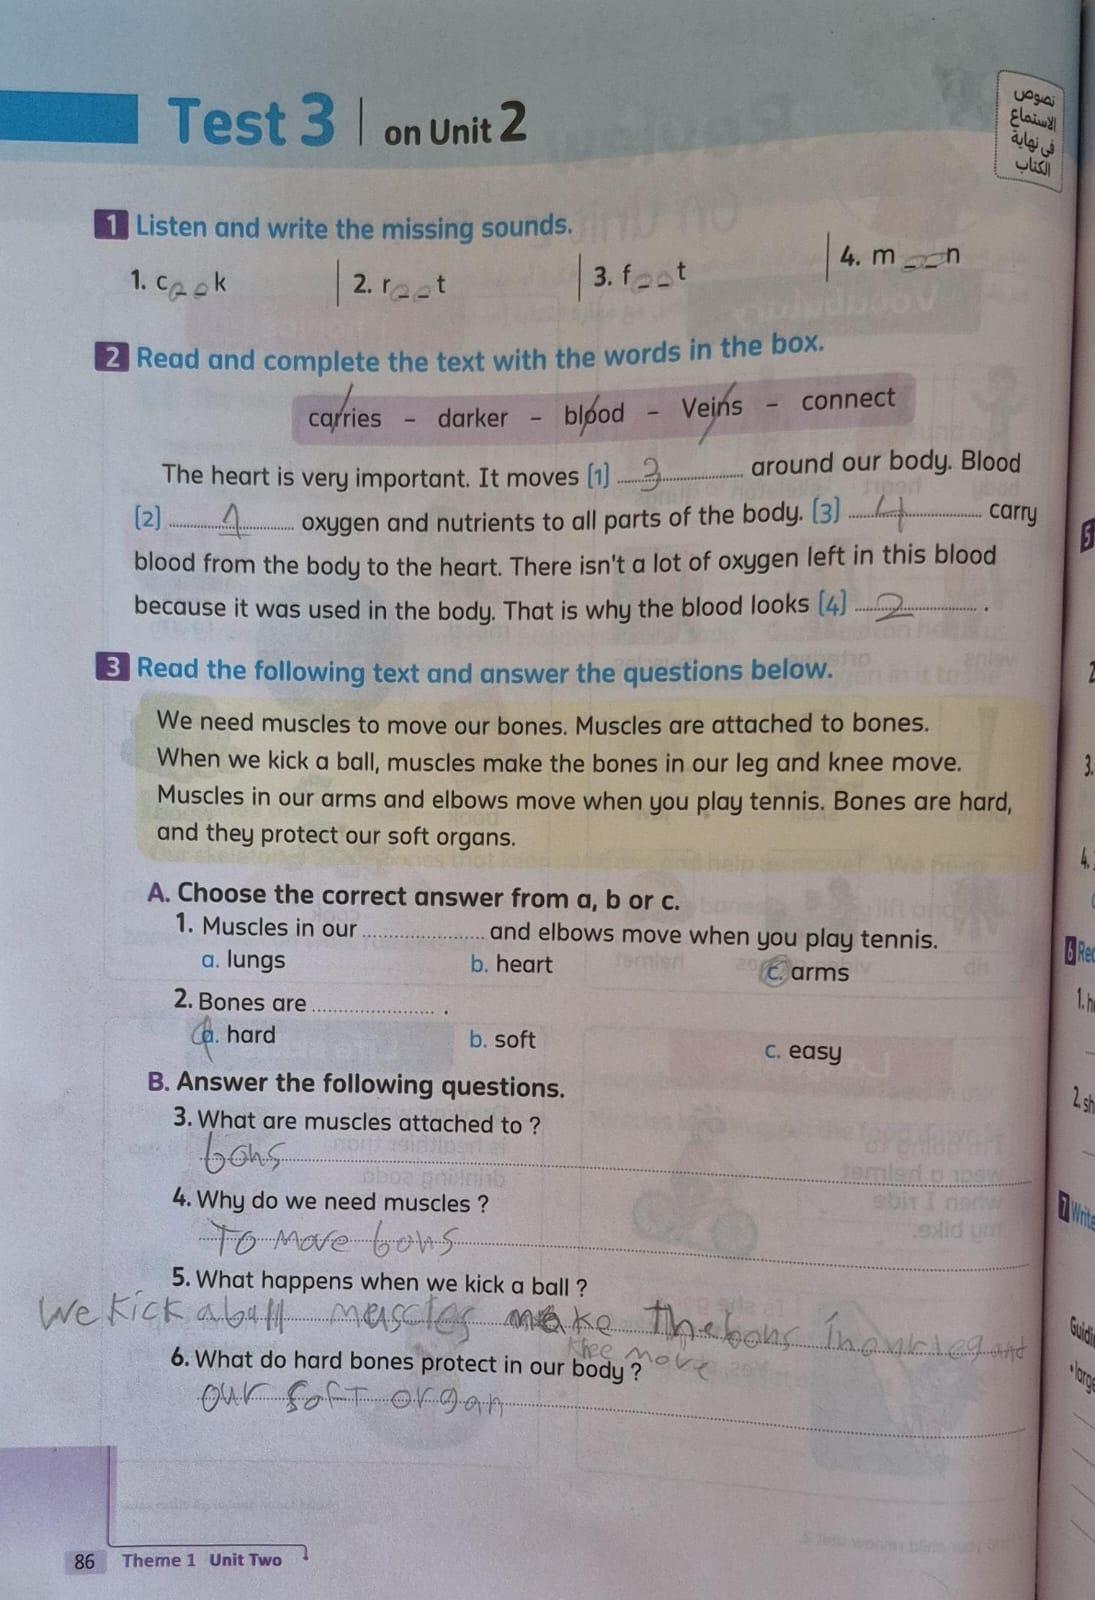 Test 3 | on Unit 2
نصوص
الاستماع
فى نهاية
الكتاب
1 Listen and write the missing sounds.
1. cook
2. root
3. foot
4. m__n
2 Read and complete the text with the words in the box.
carries - darker - blood - Veins - connect
The heart is very important. It moves (1) 3 around our body. Blood
(2) 1 oxygen and nutrients to all parts of the body. (3) 4 carry
blood from the body to the heart. There isn't a lot of oxygen left in this blood
because it was used in the body. That is why the blood looks (4) 2 .
3 Read the following text and answer the questions below.
We need muscles to move our bones. Muscles are attached to bones.
When we kick a ball, muscles make the bones in our leg and knee move.
Muscles in our arms and elbows move when you play tennis. Bones are hard,
and they protect our soft organs.
A. Choose the correct answer from a, b or c.
1. Muscles in our ........ and elbows move when you play tennis.
a. lungs b. heart c. arms
2. Bones are ........ .
a. hard b. soft c. easy
B. Answer the following questions.
3. What are muscles attached to ?
bons
4. Why do we need muscles ?
To move bons
5. What happens when we kick a ball ?
We kick a ball muscles make the bons in our leg and
knee move
6. What do hard bones protect in our body ?
our soft organ
86 Theme 1 Unit Two
5
2
3.
4.
6 Rec
1. h
2. sh
7 Write
Guidi
• large